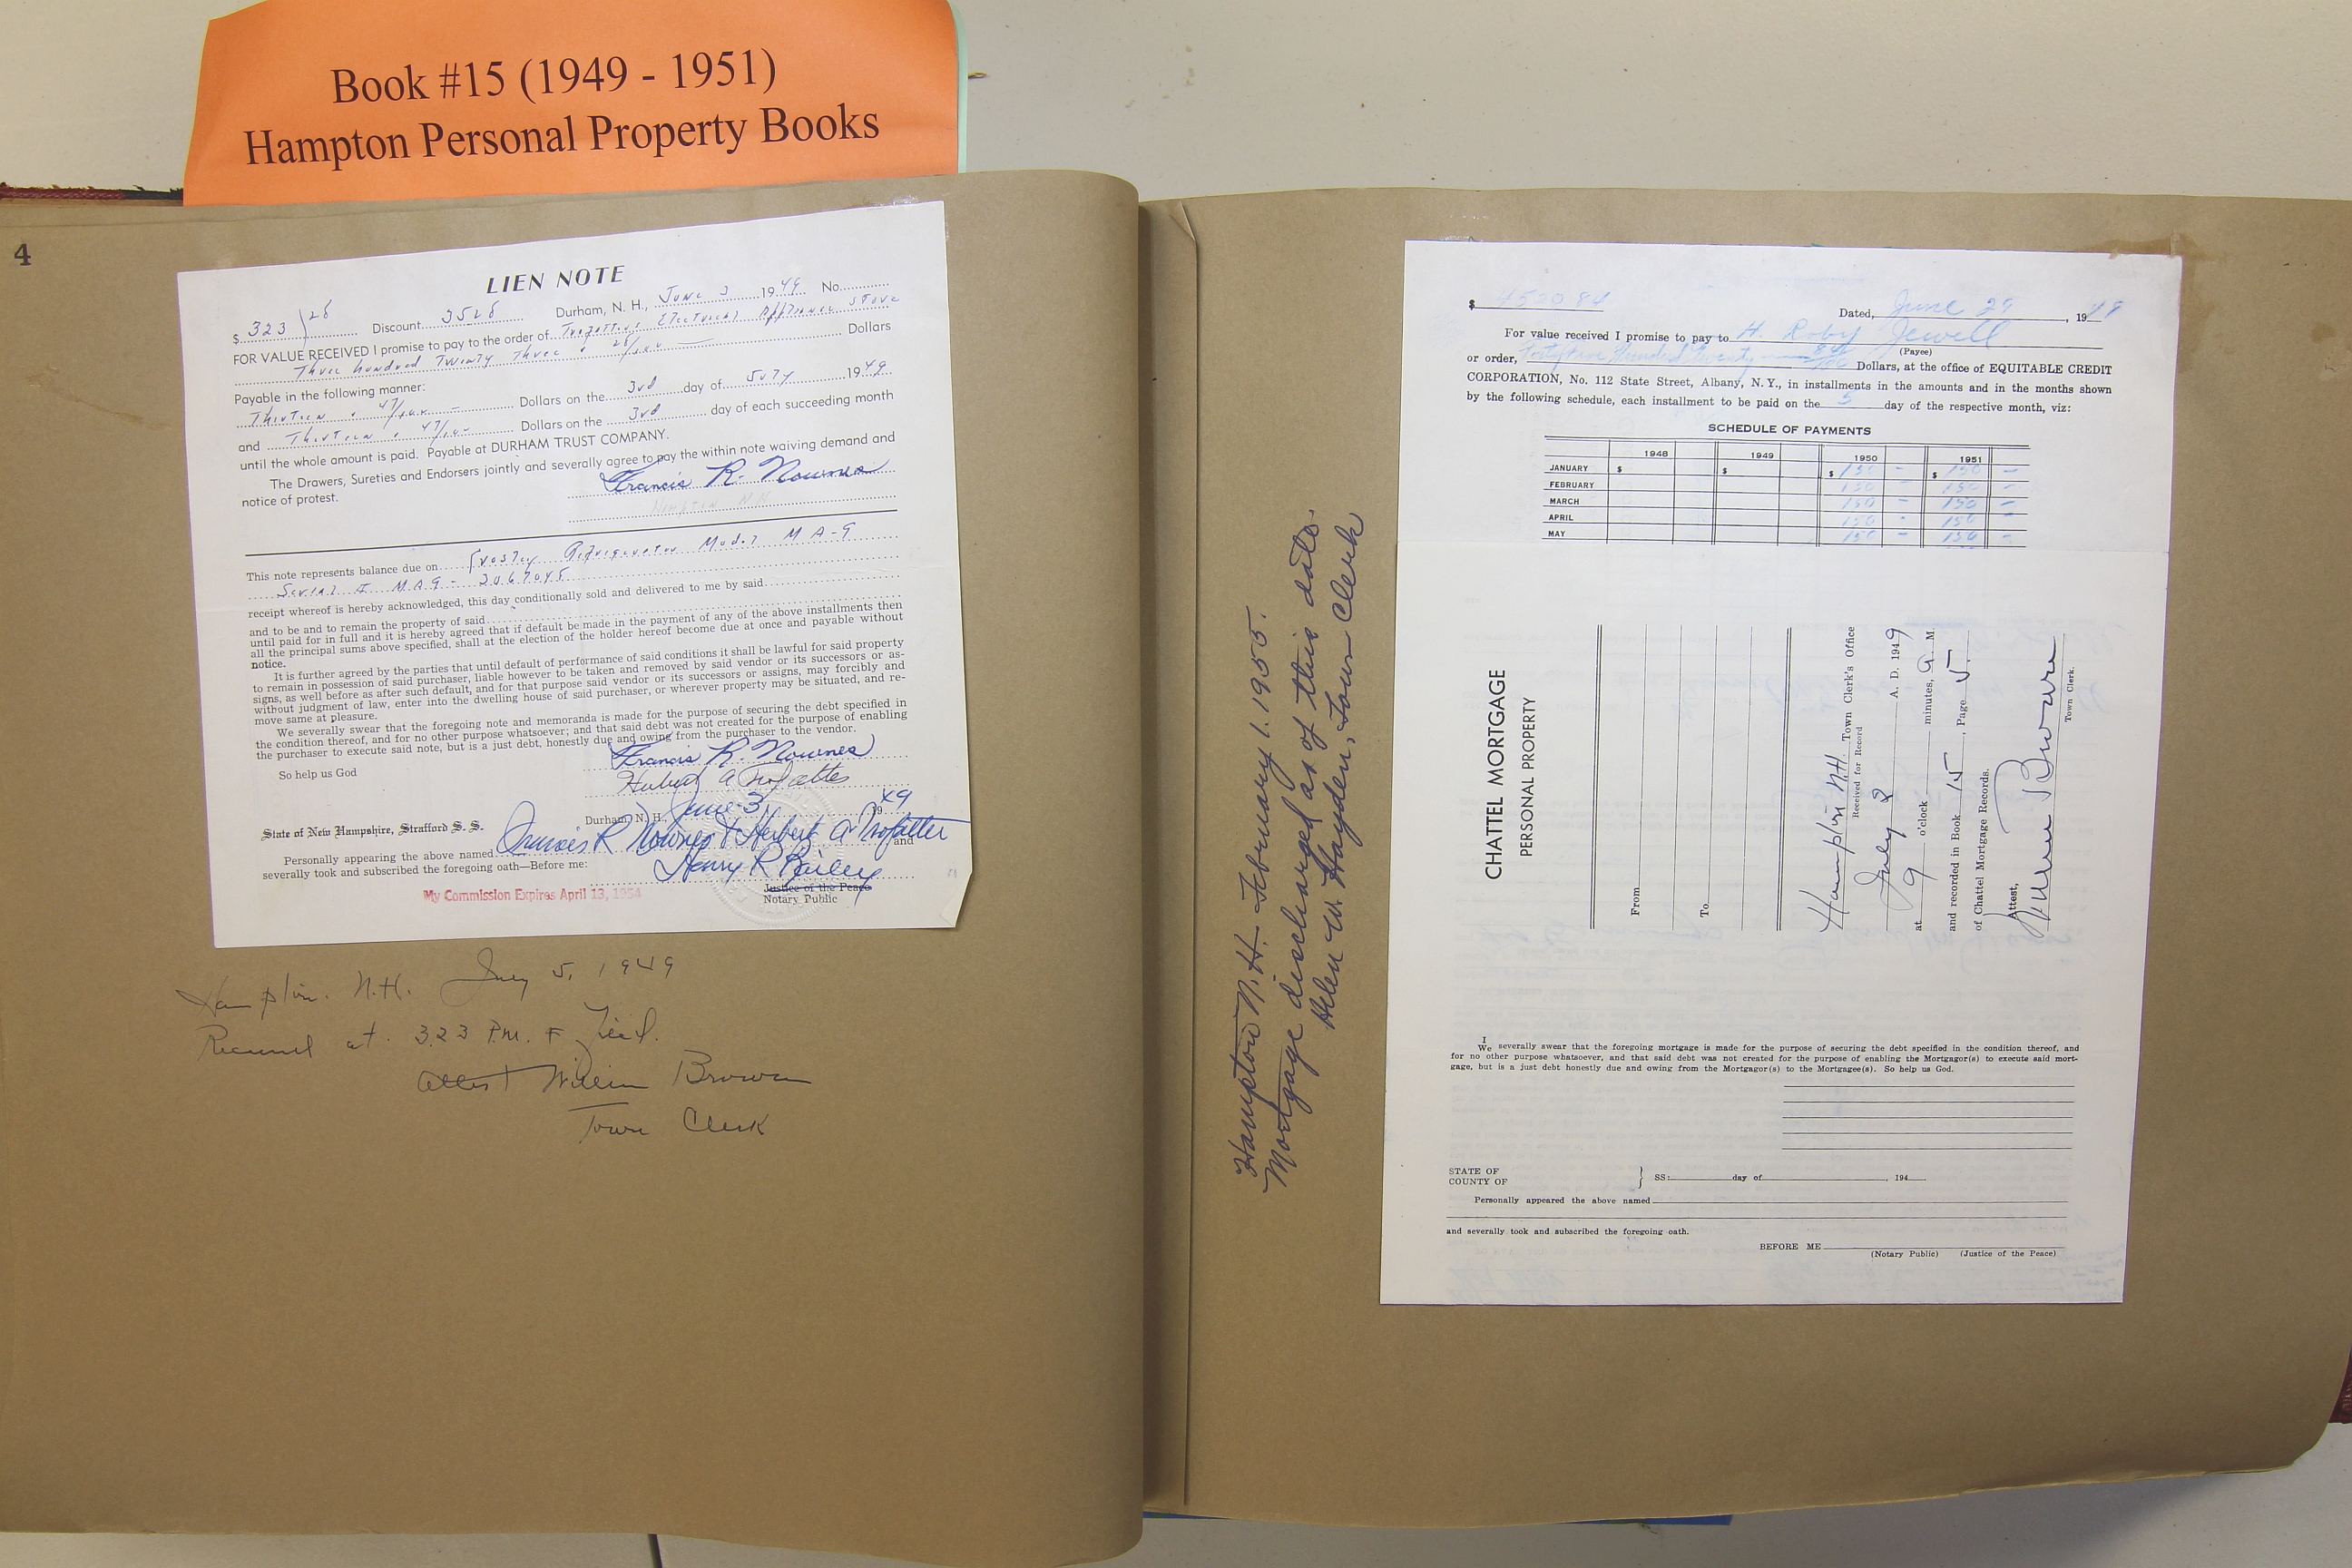 Book #15 (1949 - 1951)
Hampton Personal Property Books
4
LIEN NOTE
$ 323 28 Discount 3528 Durham, N. H., June 3 1949 No.
FOR VALUE RECEIVED I promise to pay to the order of Electrical Appliance Store
Three hundred Twenty Three & 28/100 Dollars
Payable in the following manner:
Thirteen & 47/100 Dollars on the 3rd day of July 1949
and Thirteen & 47/100 Dollars on the 3rd day of each succeeding month
until the whole amount is paid. Payable at DURHAM TRUST COMPANY.
The Drawers, Sureties and Endorsers jointly and severally agree to pay the within note waiving demand and
notice of protest.
Francis R. Nownes
Hampton N.H.
This note represents balance due on Model MA-9
Serial # MA9-
receipt whereof is hereby acknowledged, this day conditionally sold and delivered to me by said
and to be and to remain the property of said
until paid for in full and it is hereby agreed that if default be made in the payment of any of the above installments then
all the principal sums above specified, shall at the election of the holder hereof become due at once and payable without
notice.
It is further agreed by the parties that until default of performance of said conditions it shall be lawful for said property
to remain in possession of said purchaser, liable however to be taken and removed by said vendor or its successors or as-
signs, as well before as after such default, and for that purpose said vendor or its successors or assigns, may forcibly and
without judgment of law, enter into the dwelling house of said purchaser, or wherever property may be situated, and re-
move same at pleasure.
We severally swear that the foregoing note and memoranda is made for the purpose of securing the debt specified in
the condition thereof, and for no other purpose whatsoever; and that said debt was not created for the purpose of enabling
the purchaser to execute said note, but is a just debt, honestly due and owing from the purchaser to the vendor.
So help us God
Francis R. Nownes
Durham, N. H., June 3, 1949
State of New Hampshire, Strafford S. S.
Personally appearing the above named Francis R Nownes & Herbert A and
severally took and subscribed the foregoing oath—Before me: Henry R Bailey
My Commission Expires April 13, 1954
Justice of the Peace
Notary Public
Hampton. N.H. July 5, 1949
Received at 3.23 P.M. & filed.
Attest William Brown
Town Clerk
Hampton N.H. February 1. 1955.
Mortgage discharged as of this date.
Helen W. Hayden, Town Clerk
$ 4520 84
Dated, June 29, 1949
For value received I promise to pay to H. Roby Jewell
(Payee)
or order, Fortyfive Hundred Twenty 84/100 Dollars, at the office of EQUITABLE CREDIT
CORPORATION, No. 112 State Street, Albany, N. Y., in installments in the amounts and in the months shown
by the following schedule, each installment to be paid on the 5 day of the respective month, viz:
SCHEDULE OF PAYMENTS
1948 1949 1950 1951
JANUARY $ $ $ 150 – $ 150 –
FEBRUARY 150 – 150 –
MARCH 150 – 150 –
APRIL 150 – 150 –
MAY 150 – 150 –
CHATTEL MORTGAGE
PERSONAL PROPERTY
From
To
Hampton N.H. Town Clerk's Office
Received for Record
July 2 A. D. 1949
at 9 o'clock minutes, A. M.
and recorded in Book 15, Page 5.
of Chattel Mortgage Records.
Attest,
William Brown
Town Clerk.
I
We severally swear that the foregoing mortgage is made for the purpose of securing the debt specified in the condition thereof, and
for no other purpose whatsoever, and that said debt was not created for the purpose of enabling the Mortgagor(s) to execute said mort-
gage, but is a just debt honestly due and owing from the Mortgagor(s) to the Mortgagee(s). So help us God.
STATE OF
COUNTY OF } SS: day of , 194
Personally appeared the above named
and severally took and subscribed the foregoing oath.
BEFORE ME
(Notary Public) (Justice of the Peace)